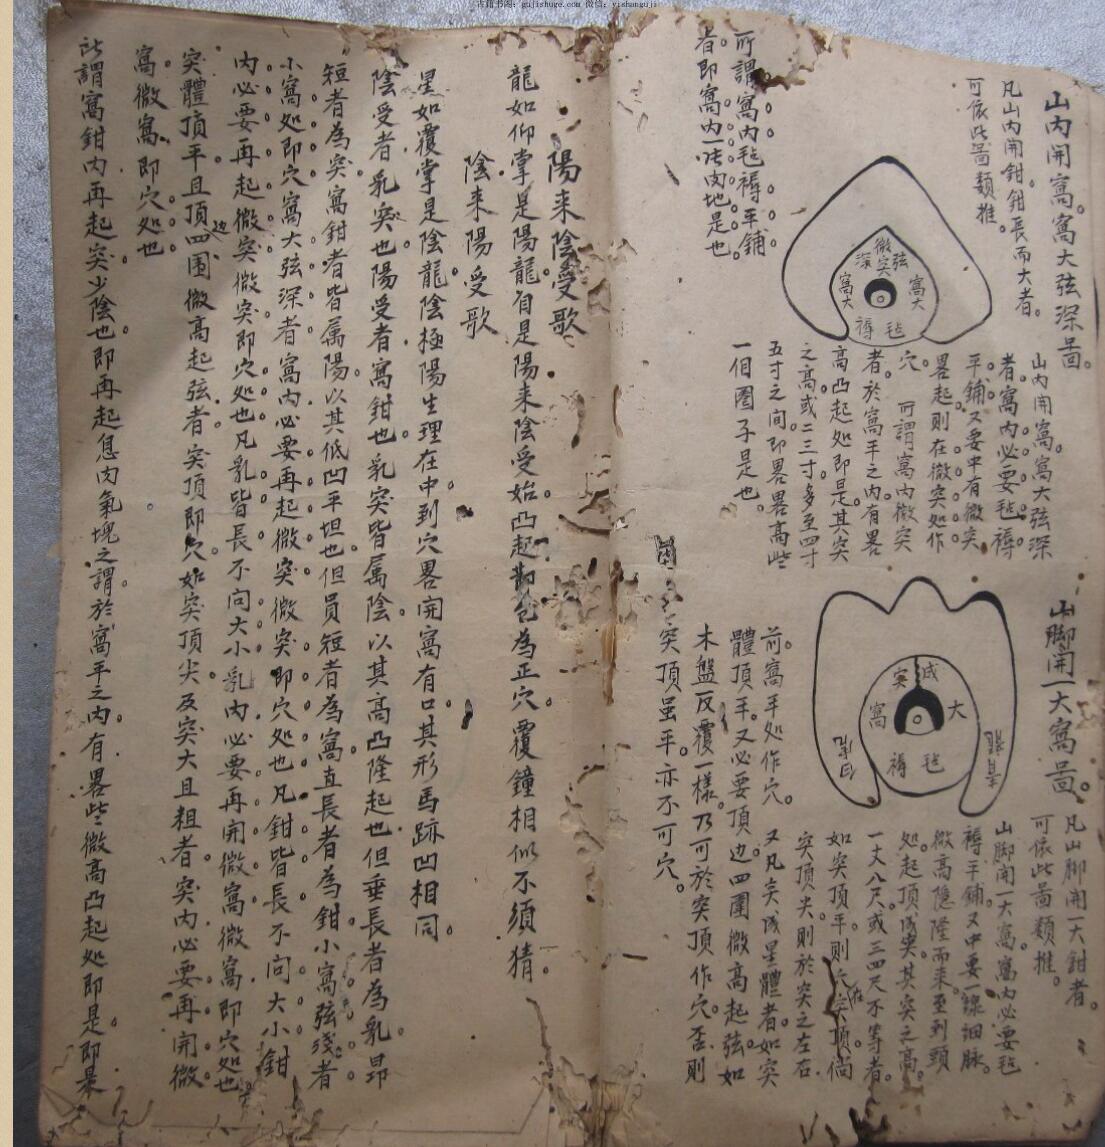 古籍书阁：gujishuge.com 微信：yishanguji
山内開窩窩大弦深圖。
凡山内開鉗鉗長而大者。
可依此圖類推。
微突
弦
深
窩大
窩大
毡
褥
山内開窩窩大弦深
者窩内必要毡褥
平鋪又要中有微突
畧起則在微突処作
穴。所謂窩内微突
者於窩平之内有畧
高凸起処即是其突
之高或二三寸多至四寸
五寸之间即畧畧高些
一個圈子是也。
所謂窩内毡褥平鋪
者即窩内一片肉地是也。
山脚開一大窩圖。
凡山脚開一大鉗者。
可依此圖類推。
成
突
大
窩
毡
褥
山脚開一大窩窩内必要毡
褥平鋪又中要一線細脉。
微高隐隆而来至到頭
処起頂成突其突之高。
一丈八尺或三四尺不等者。
如突頂平則穴突頂尚
突頂尖則於突之左右
前窩平処作穴。又凡突成星體者如突
體頂平。又必要頂边四圍微高起弦如
木盤反覆一樣。乃可於突頂作穴否則
突頂虽平。亦不可穴。
陽来陰受歌
龍如仰掌是陽龍。自是陽来陰受始。凸起為正穴。覆鐘相似不須猜。
陰来陽受歌
星如覆掌是陰龍。陰極陽生理在中。到穴畧開窩有口。其形馬跡凹相同。
陰受者乳突也陽受者窩鉗也。乳突皆属陰。以其高凸隆起也但垂長者為乳。昂
短者為突。窩鉗者皆属陽。以其低凹平坦也但員短者為窩。直長者為鉗。小窩弦残者
小窩処即穴。窩大弦深者窩内必要再起微突微突即穴処也凡鉗皆長不问大小鉗
内必要再起微突微突即穴処也凡乳皆長不问大小乳内必要再開微窩微窩即穴処也
突體頂平且頂边四围微高起弦者突頂即穴。如突頂尖及突大且粗者突内必要再開微
窩微窩即穴処也
此謂窩鉗内再起突少陰也即再起息肉氣塊之謂於窩平之内有畧些微高凸起処即是。即畧